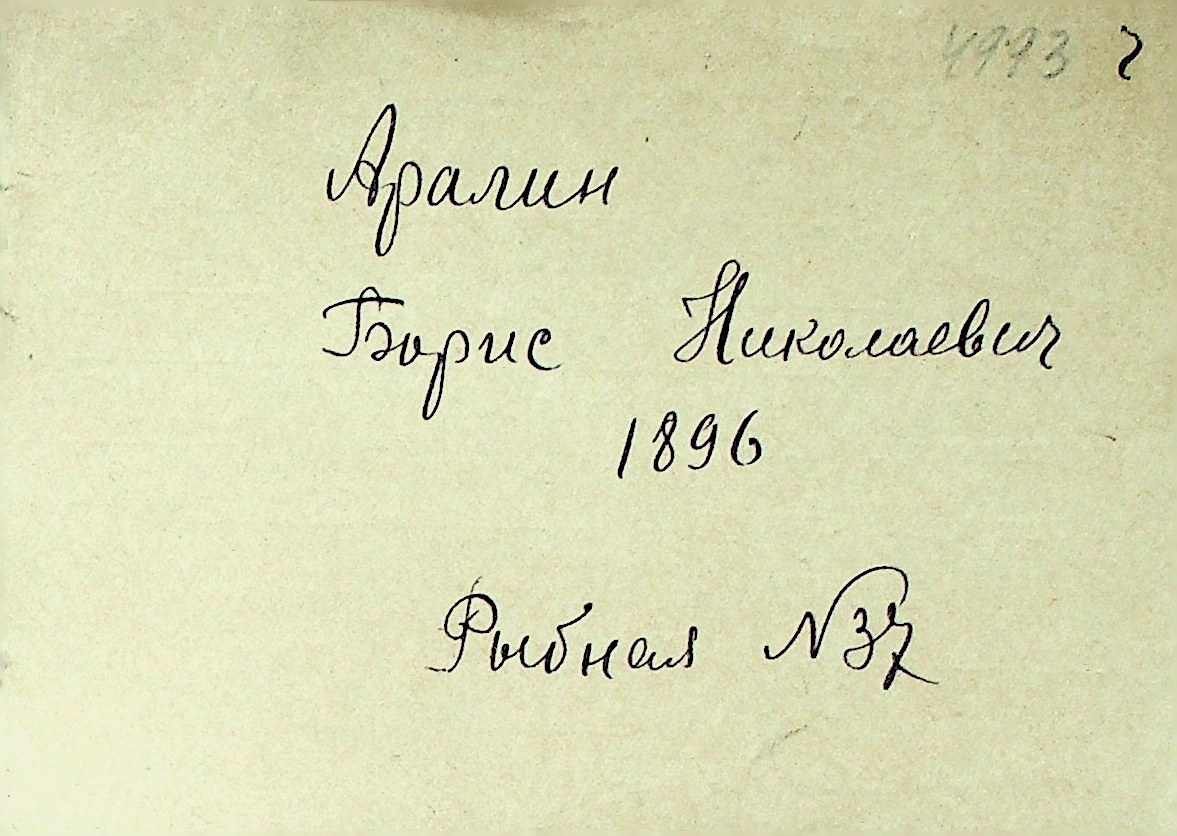 4993 2
Аралин
Борис Николаевич
1896
Рыбная №37